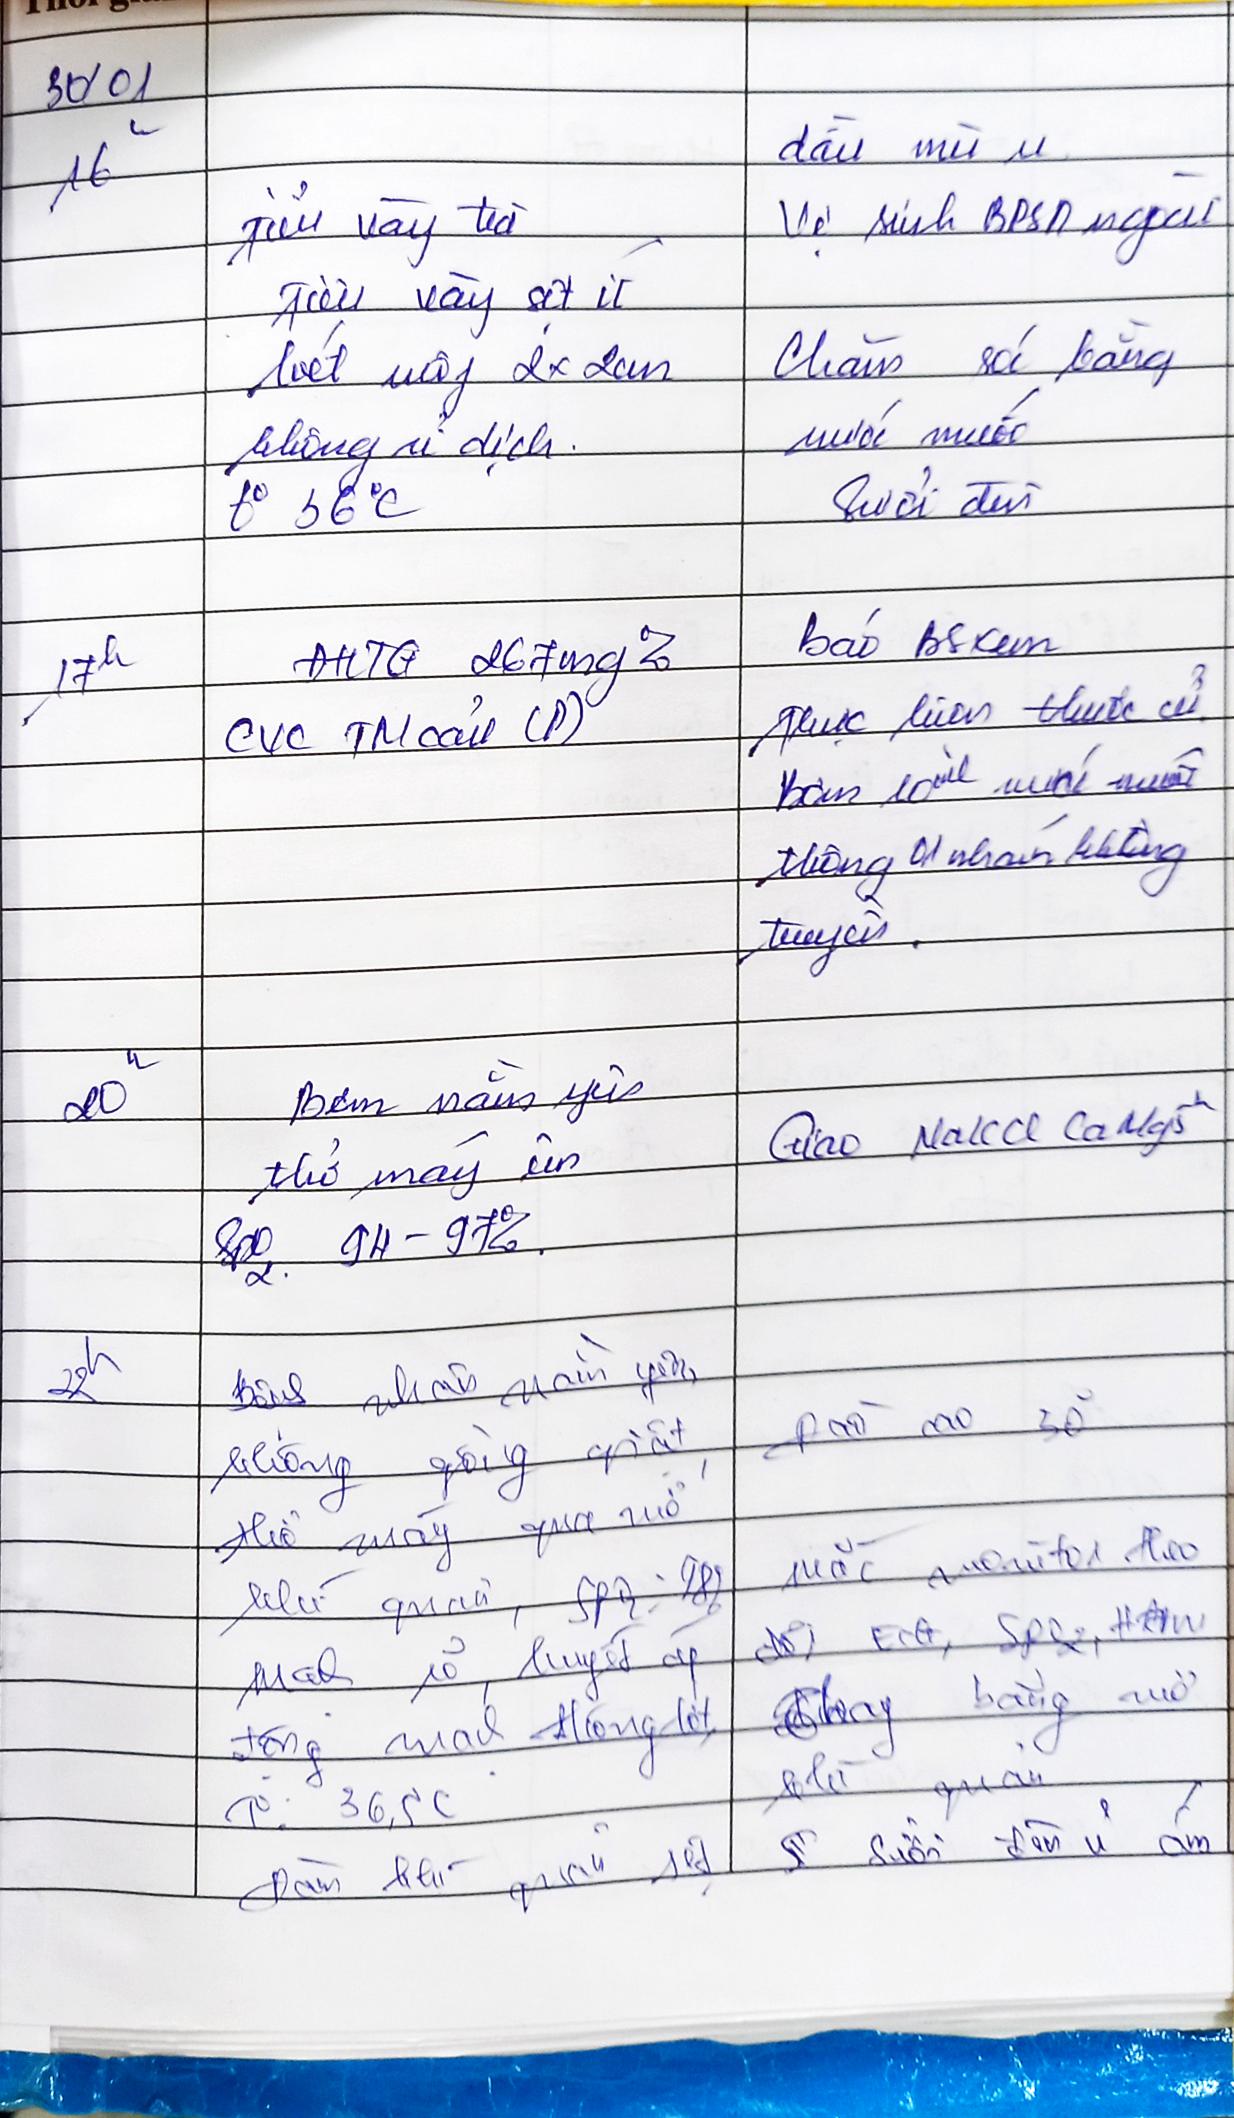 30/01
16h
dầu mù u
Tiểu vàng trà
Vệ sinh BPSD ngoài
Tiêu vàng sệt ít
loét mông 2x2cm
Chăm sóc bằng
không rỉ dịch.
nước muối
t° 36°C
Sưởi đèn
17h
ĐHTG 267mg%
Báo BS Xem
CVC TM cảnh (P)
Thực hiện thuốc cử
Bơm 10ml nước muối
thông 01 nhánh không
truyền.
20h
Bệnh nằm yên
thở máy êm
Giao NaKCl CaMg 5h
SpO2. 94-97%.
22h
Bệnh nhân nằm yên,
không gồng giật
đầu cao 30°
thở máy qua mở
khí quản, SpO2: 98%
mắc monitor theo
Mạch rõ, huyết áp
dõi ECG, SpO2, HA
động mạch
Thay băng mở
T°: 36,5°C
khí quản
Đàm khí quản sệt
Sưởi đèn ủ ấm